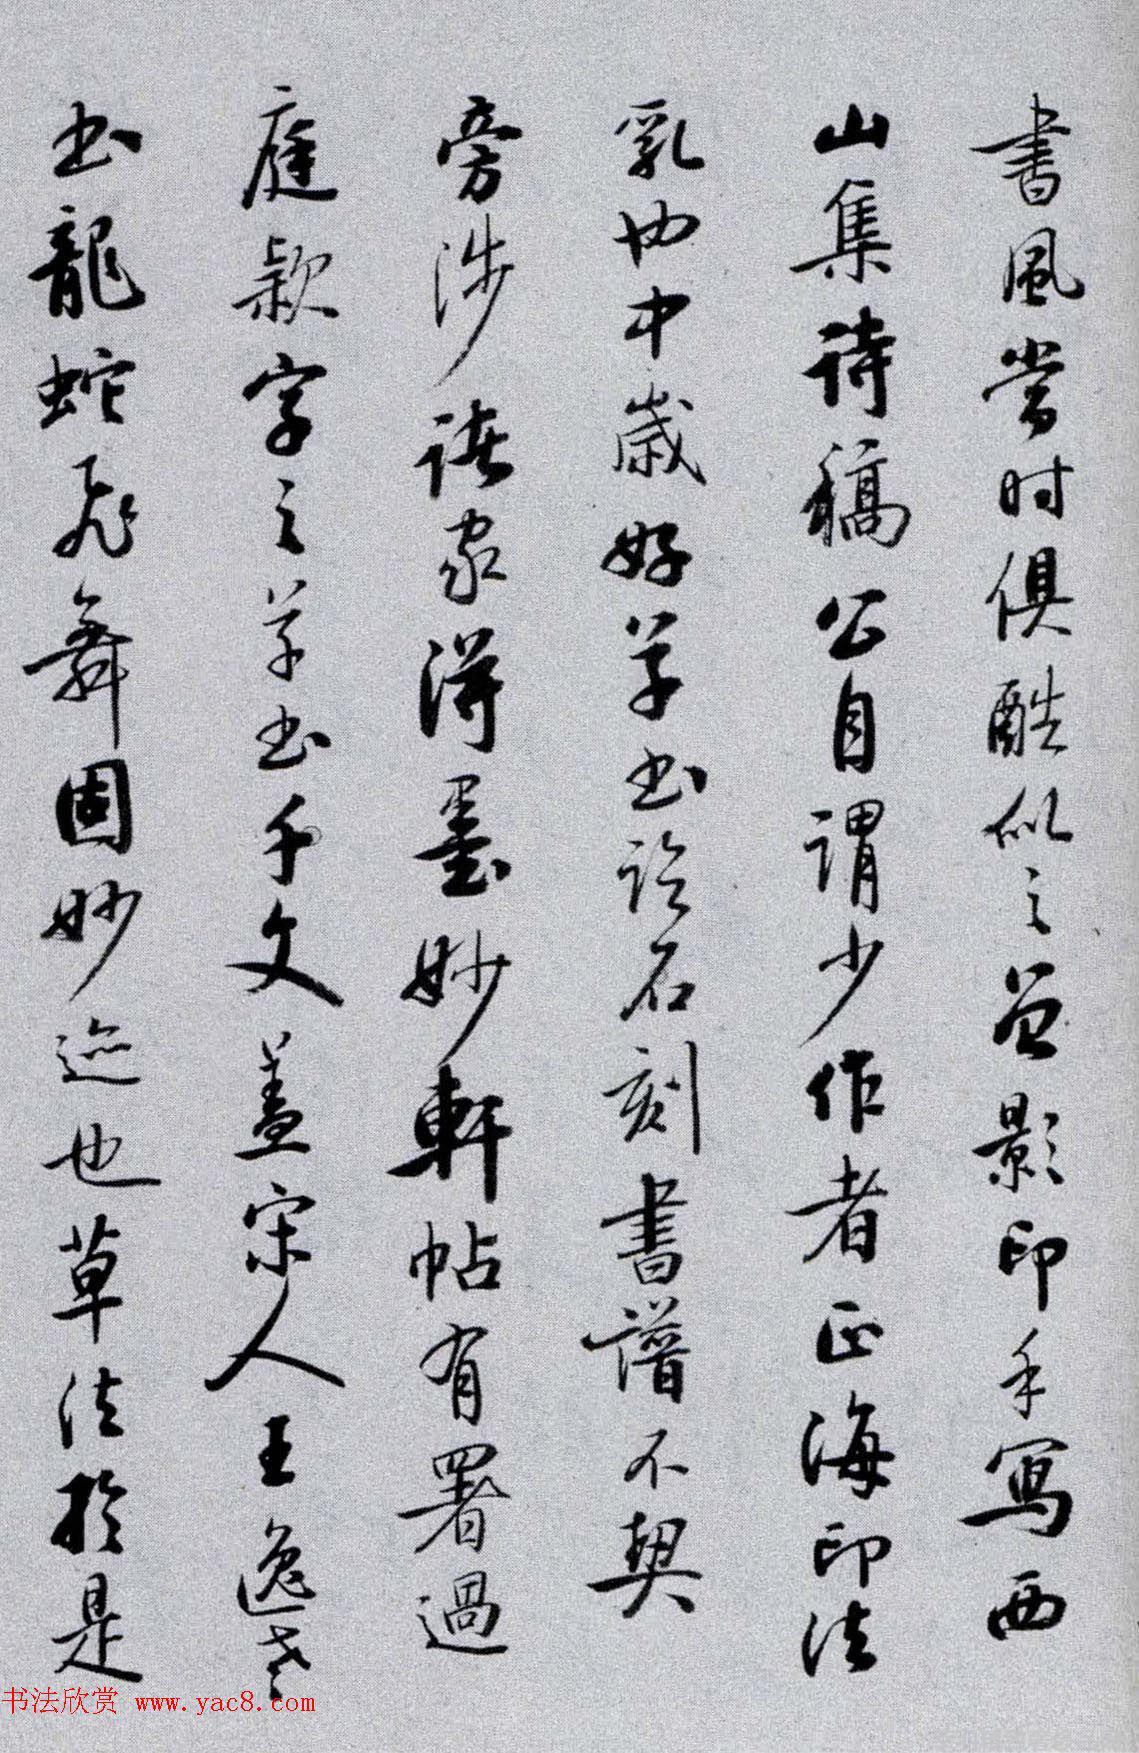 書風当时俱酷似之曾影印手寫西
山集诗稿公自謂少作者正海印法
乳也中歲好草书论石刻書譜不契
旁涉諸家得墨妙軒帖有署過
庭款字之草书千文盖宋人王逸老
书龍蛇飛舞固妙迹也草法於是
书法欣赏 www.yac8.com